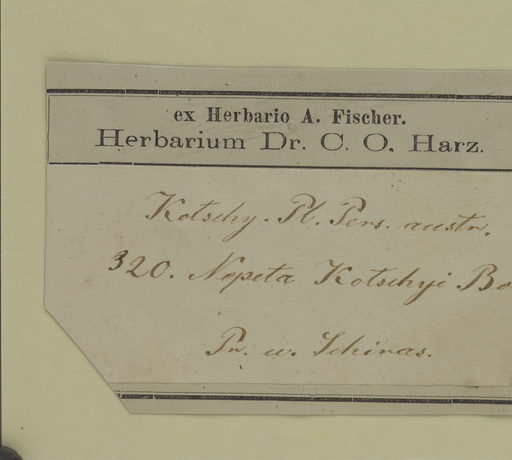 ex Herbario A. Fischer.
Herbarium Dr. C. O. Harz.
Kotschy. Pl. Pers. austr.
320. Nepeta Kotschyi Bo
Pr. u. Schiras.